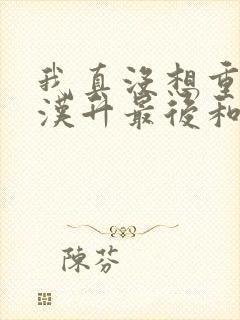 我真沒想重
漢升最後和
陳芬